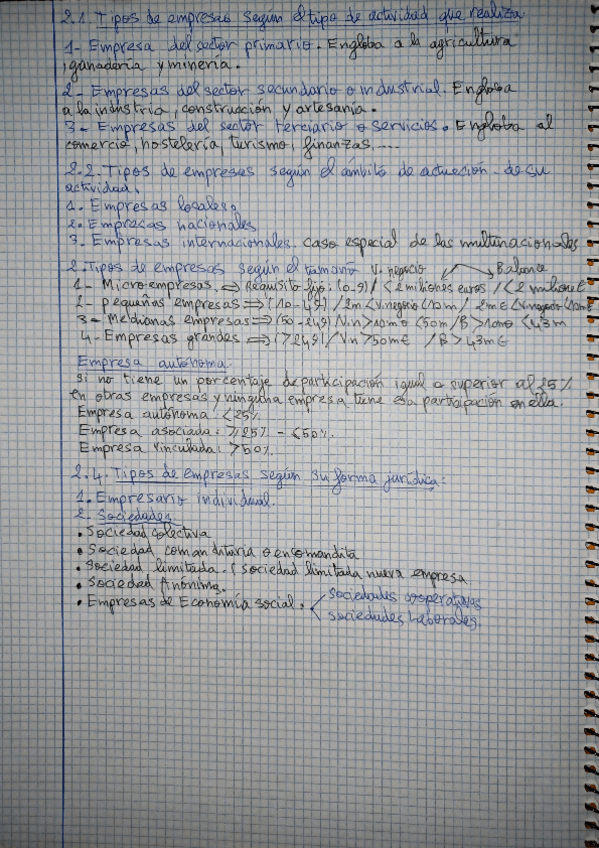 2.1. Tipos de empresas según el tipo de actividad que realiza
1- Empresa del sector primario. Engloba a la agricultura
, ganadería y minería.
2- Empresas del sector secundario o industrial. Engloba
a la industria, construcción y artesanía.
3- Empresas del sector terciario o servicios. Engloba al
comercio, hostelería, turismo, finanzas, ....
2.2. Tipos de empresas según el ámbito de actuación de su
actividad.
1. Empresas locales.
2. Empresas nacionales
3. Empresas internacionales. caso especial de las multinacionales
2. Tipos de empresas según el tamaño V. negocio Balance
1- Microempresas. ⇒ Requisito fijo: (0-9) / <2 millones euros / <2 millon €
2- pequeñas empresas ⇒ (10-49) / 2m < V.negocio <10m / 2m€ < V.negocio <10m€
3- Medianas empresas ⇒ (50-249) / V.n > 10m€ <50m / B > 10m€ <43m
4- Empresas grandes ⇒ (>249) / V.n >50m€ / B > 43m€
Empresa autónoma
si no tiene un porcentaje de participación igual o superior al 25%
en otras empresas y ninguna empresa tiene esa participación en ella.
Empresa autónoma: <25%
Empresa asociada: ≥25% - ≤50%.
Empresa vinculada: >50%.
2.4. Tipos de empresas según su forma jurídica:
1. Empresario individual.
2. Sociedades
• Sociedad colectiva
• Sociedad comanditaria o en comandita
• Sociedad limitada. (sociedad limitada nueva empresa
• Sociedad Anónima.
• Empresas de Economía social. Sociedades cooperativas
sociedades Laborales.